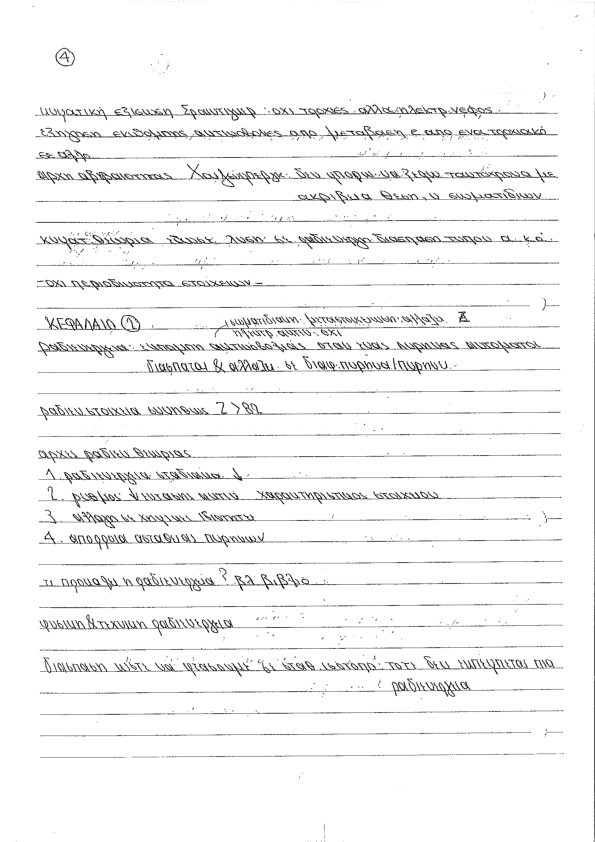 ④
κυματική εξίσωση Σραιντιγκερ : οχι τροχιές αλλα ηλεκτρ. νεφος.
εξηγηση εκπομπης ακτινοβολιας απο μεταβαση e απο ενα τροχιακό
σε αλλο
αρχη αβεβαιοτητας Χαιζενμπεργκ: δεν μπορω να ξερω ταυτοχρονα με
ακριβεια θεση, υ σωματιδιων
κυματ. θεωρια εδωσε λυση σε ραδιενεργη διασπαση τυπου α. κ.α.
-οχι περιοδικοτητα στοιχειων-
ΚΕΦΑΛΑΙΟ ②
σωματιδιακη: μεταστοιχειωση: αλλαζει Z
ηλεκτρ. ακτιν: οχι
ραδιενεργεια: εκπομπη ακτινοβολιας οταν ενας πυρηνας αυτοματα
διασπαται & αλλαζει σε διαφ. πυρηνα/πυρηνες
ραδιεν στοιχεια συνηθως Z > 82
αρχες ραδιεν θεωριας
1. ραδιενεργεια σταδιακα ↓
2. ρυθμος ↓ εντασης ακτιν χαρακτηριστικος στοιχειου
3. αλλαγη σε χημικες ιδιοτητες
4. απορροια ασταθειας πυρηνων
τι προκαλει η ραδιενεργεια ? βλ βιβλιο
φυσικη & τεχνητη ραδιενεργεια
διασπαση ωστε να φτασουμε σε σταθ ισοτοπο: τοτε δεν εκπεμπεται πια
ραδιενεργεια